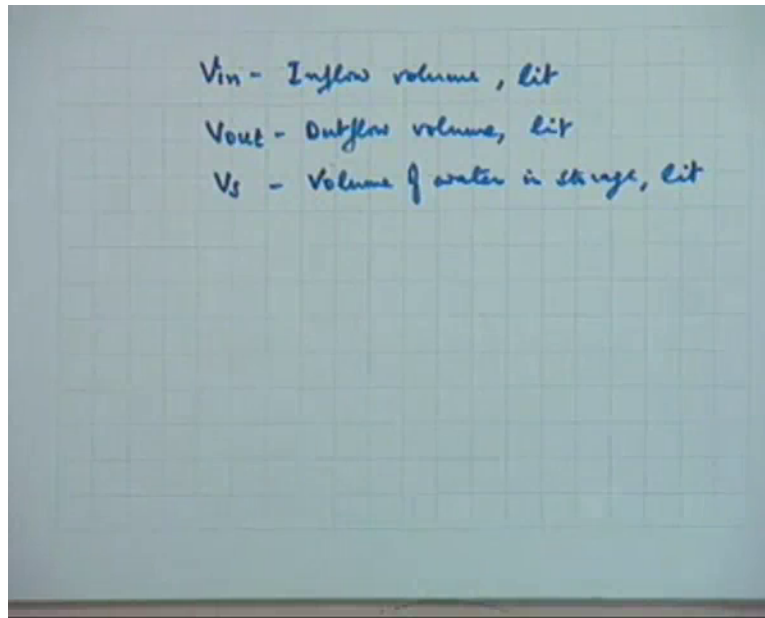 Vin - Inflow volume, lit
Vout - Outflow volume, lit
Vs - Volume of water in storage, lit